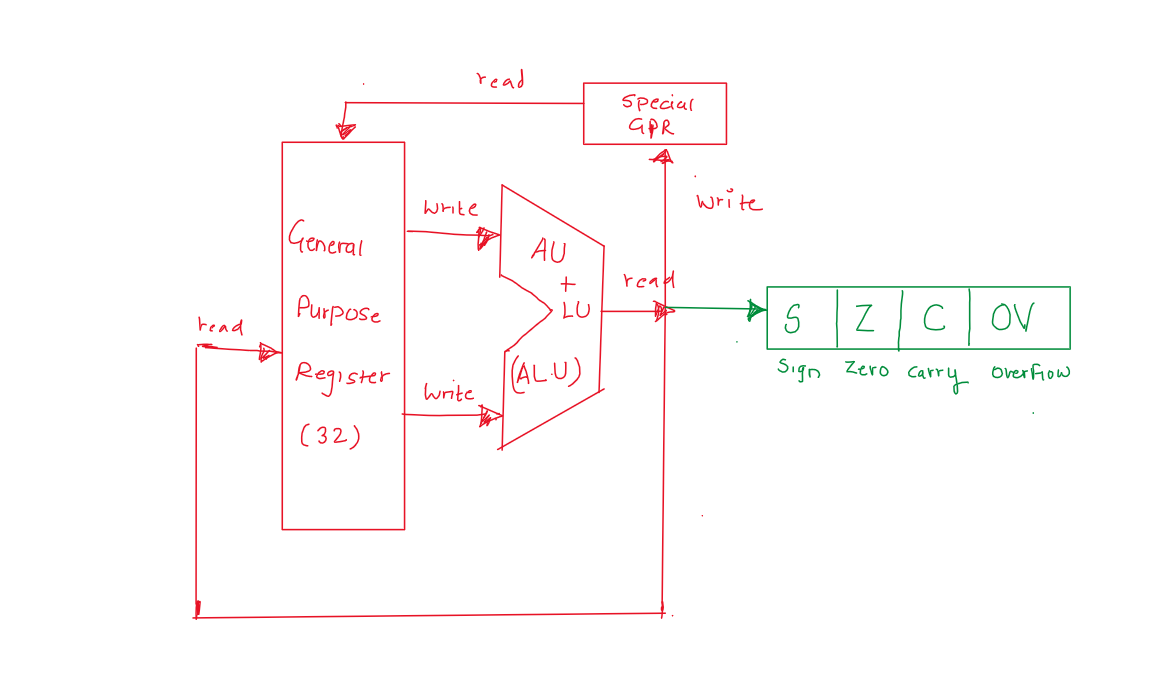 read
Special
GPR
write
General
Purpose
Register
(32)
write
write
read
AU
+
LU
(ALU)
read
S Z C OV
Sign Zero Carry Overflow